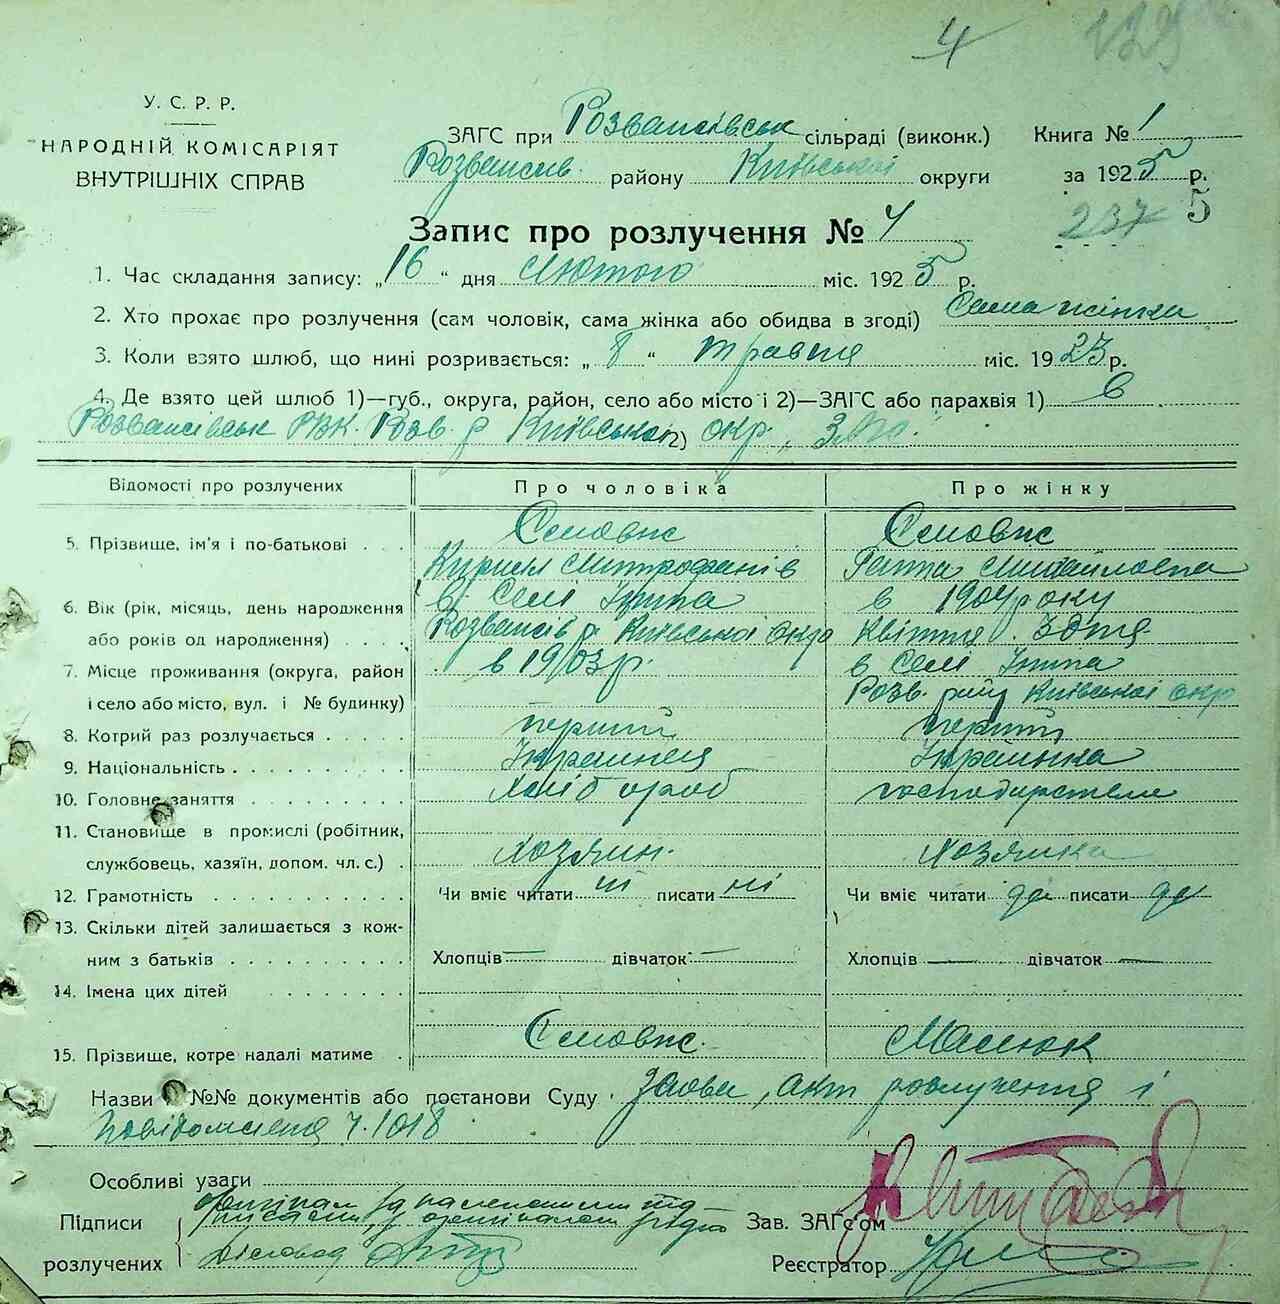 4
129
У. С. Р. Р.
НАРОДНІЙ КОМІСАРІЯТ
ВНУТРІШНІХ СПРАВ
ЗАГС при Розважівськ сільраді (виконк.) Книга № 1
Розважів району Київської округи за 1925 р.
Запис про розлучення № 4
237 5
1. Час складання запису: „16“ дня Лютого міс. 1925 р.
2. Хто прохає про розлучення (сам чоловік, сама жінка або обидва в згоді) Сама жінка
3. Коли взято шлюб, що нині розривається: „8“ травня міс. 1923 р.
4. Де взято цей шлюб 1)—губ., округа, район, село або місто і 2)—ЗАГС або парахвія 1) в
Розважівськ РВК. Розв. р Київської 2) окр.,
Відомості про розлучених
Про чоловіка
Про жінку
5. Прізвище, ім'я і по-батькові . . .
Кирил Митрофанів
Ганна Михайловна
6. Вік (рік, місяць, день народження або років од народження) . . .
в Селі
Розважів р. Київської окр
в 1903 р.
в 1904 року
Квітня
7. Місце проживання (округа, район і село або місто, вул. і № будинку)
в Селі
Розв. рай Київської окр
8. Котрий раз розлучається . . . . .
перший
перший
9. Національність . . . . . . . . . . .
Українець
Українка
10. Головне заняття . . . . . . . . .
Хлібороб
11. Становище в промислі (робітник, службовець, хазяїн, допом. чл. с.) .
Хозяин.
Хозяйка
12. Грамотність . . . . . . . . . . . .
Чи вміє читати ні писати ні
Чи вміє читати да писати да
13. Скільки дітей залишається з кожним з батьків . . . . . . . . . .
Хлопців — дівчаток —
Хлопців — дівчаток —
14. Імена цих дітей . . . . . . . .
15. Прізвище, котре надалі матиме .
Малюк
Назви і №№ документів або постанови Суду Заява, акт розлучення і
повідомлення ч. 1018
Особливі уваги
Підписи розлучених
Оригінал за належними підписами, з оригіналом згідно
Діловод
Зав. ЗАГс'ом
Реєстратор